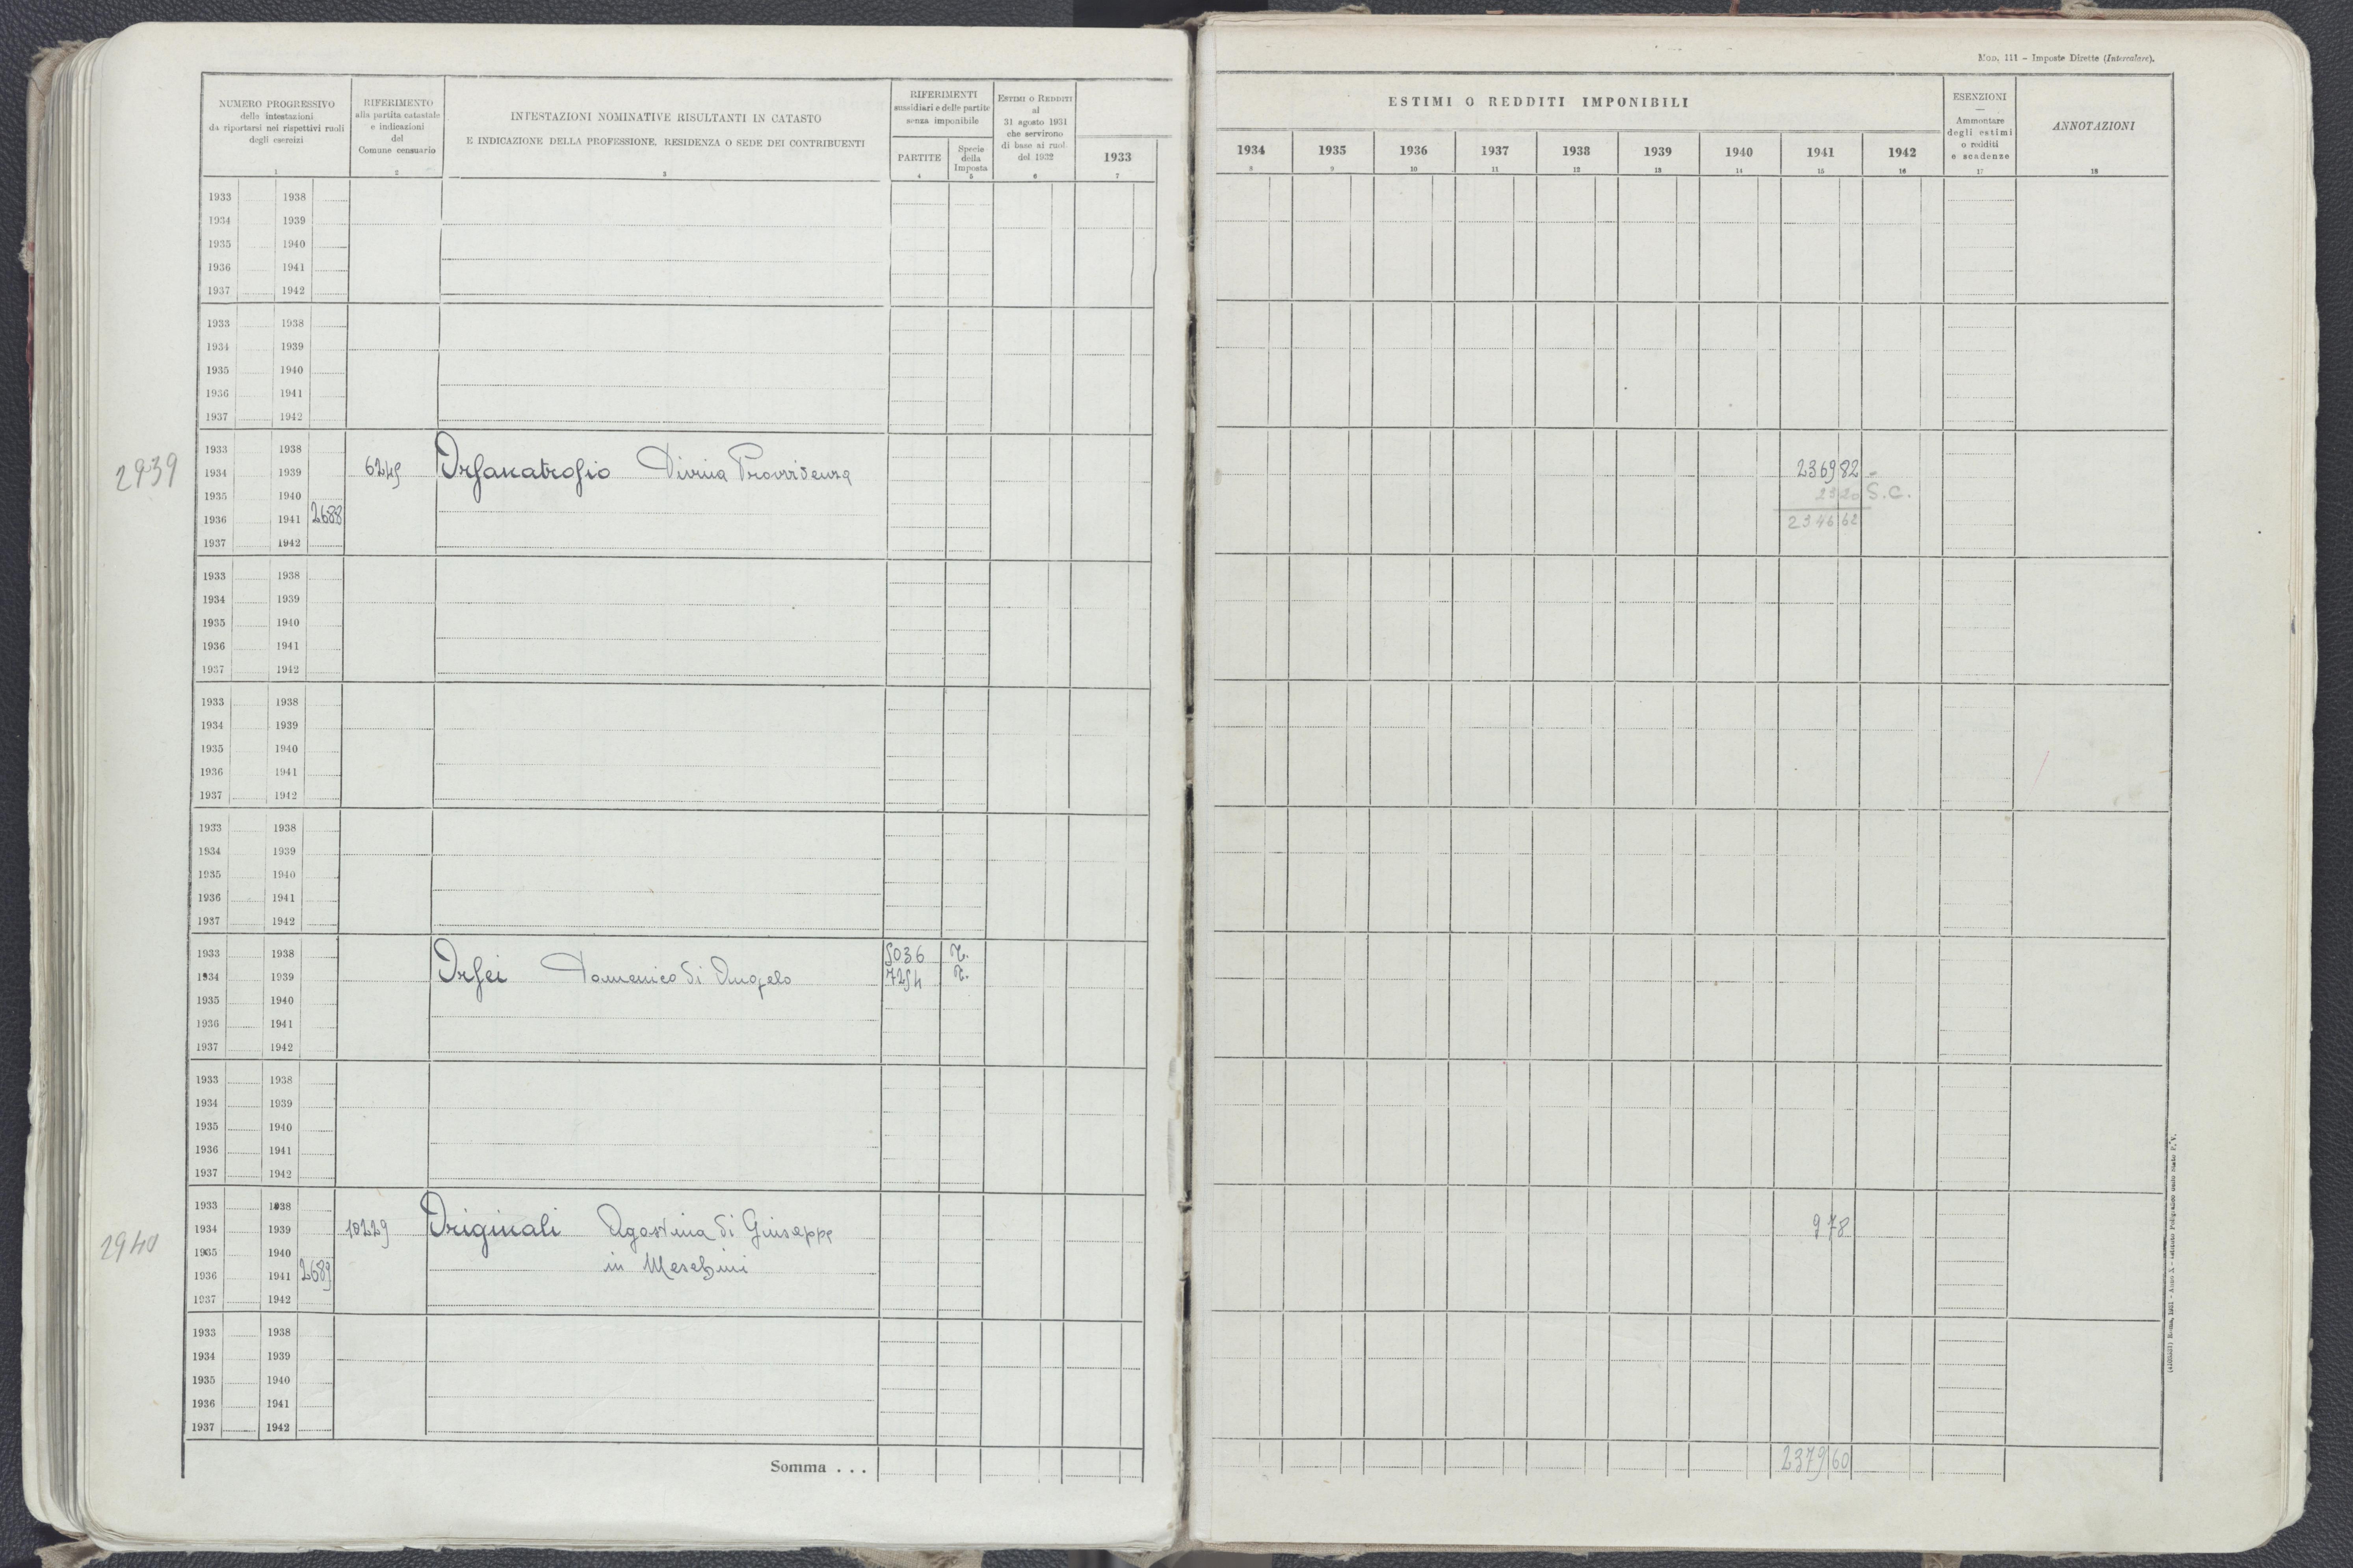 Mod. 111 – Imposte Dirette (Intercalare).
NUMERO PROGRESSIVO
delle intestazioni
da riportarsi nei rispettivi ruoli
degli esercizi
1
RIFERIMENTO
alla partita catastale
e indicazioni
del
Comune censuario
2
INTESTAZIONI NOMINATIVE RISULTANTI IN CATASTO
E INDICAZIONE DELLA PROFESSIONE, RESIDENZA O SEDE DEI CONTRIBUENTI
3
RIFERIMENTI
sussidiari e delle partite
senza imponibile
PARTITE
4
Specie
della
Imposta
5
Estimi o Redditi
al
31 agosto 1931
che servirono
di base ai ruol
del 1932
6
1933
7
ESTIMI O REDDITI IMPONIBILI
1934 1935 1936 1937 1938 1939 1940 1941 1942
8 9 10 11 12 13 14 15 16
ESENZIONI
—
Ammontare
degli estimi
o redditi
e scadenze
17
ANNOTAZIONI
18
1933 1938
1934 1939
1935 1940
1936 1941
1937 1942
1933 1938
1934 1939
1935 1940
1936 1941
1937 1942
1933 1938
2939 1934 1939 6249 Orfanatrofio Divina Provvidenza 236982 -
1935 1940 2320 S.C.
1936 1941 2688 234662
1937 1942
1933 1938
1934 1939
1935 1940
1936 1941
1937 1942
1933 1938
1934 1939
1935 1940
1936 1941
1937 1942
1933 1938
1934 1939
1935 1940
1936 1941
1937 1942
1933 1938 5036 r.
1934 1939 Orfei Domenico di Angelo 7254 r.
1935 1940
1936 1941
1937 1942
1933 1938
1934 1939
1935 1940
1936 1941
1937 1942
1933 1938
1934 1939 10229 Originali Agostina di Giuseppe 978
2940 1935 1940
1936 1941 2689 in Meschini
1937 1942
1933 1938
1934 1939
1935 1940
1936 1941
1937 1942
Somma . . . 237960